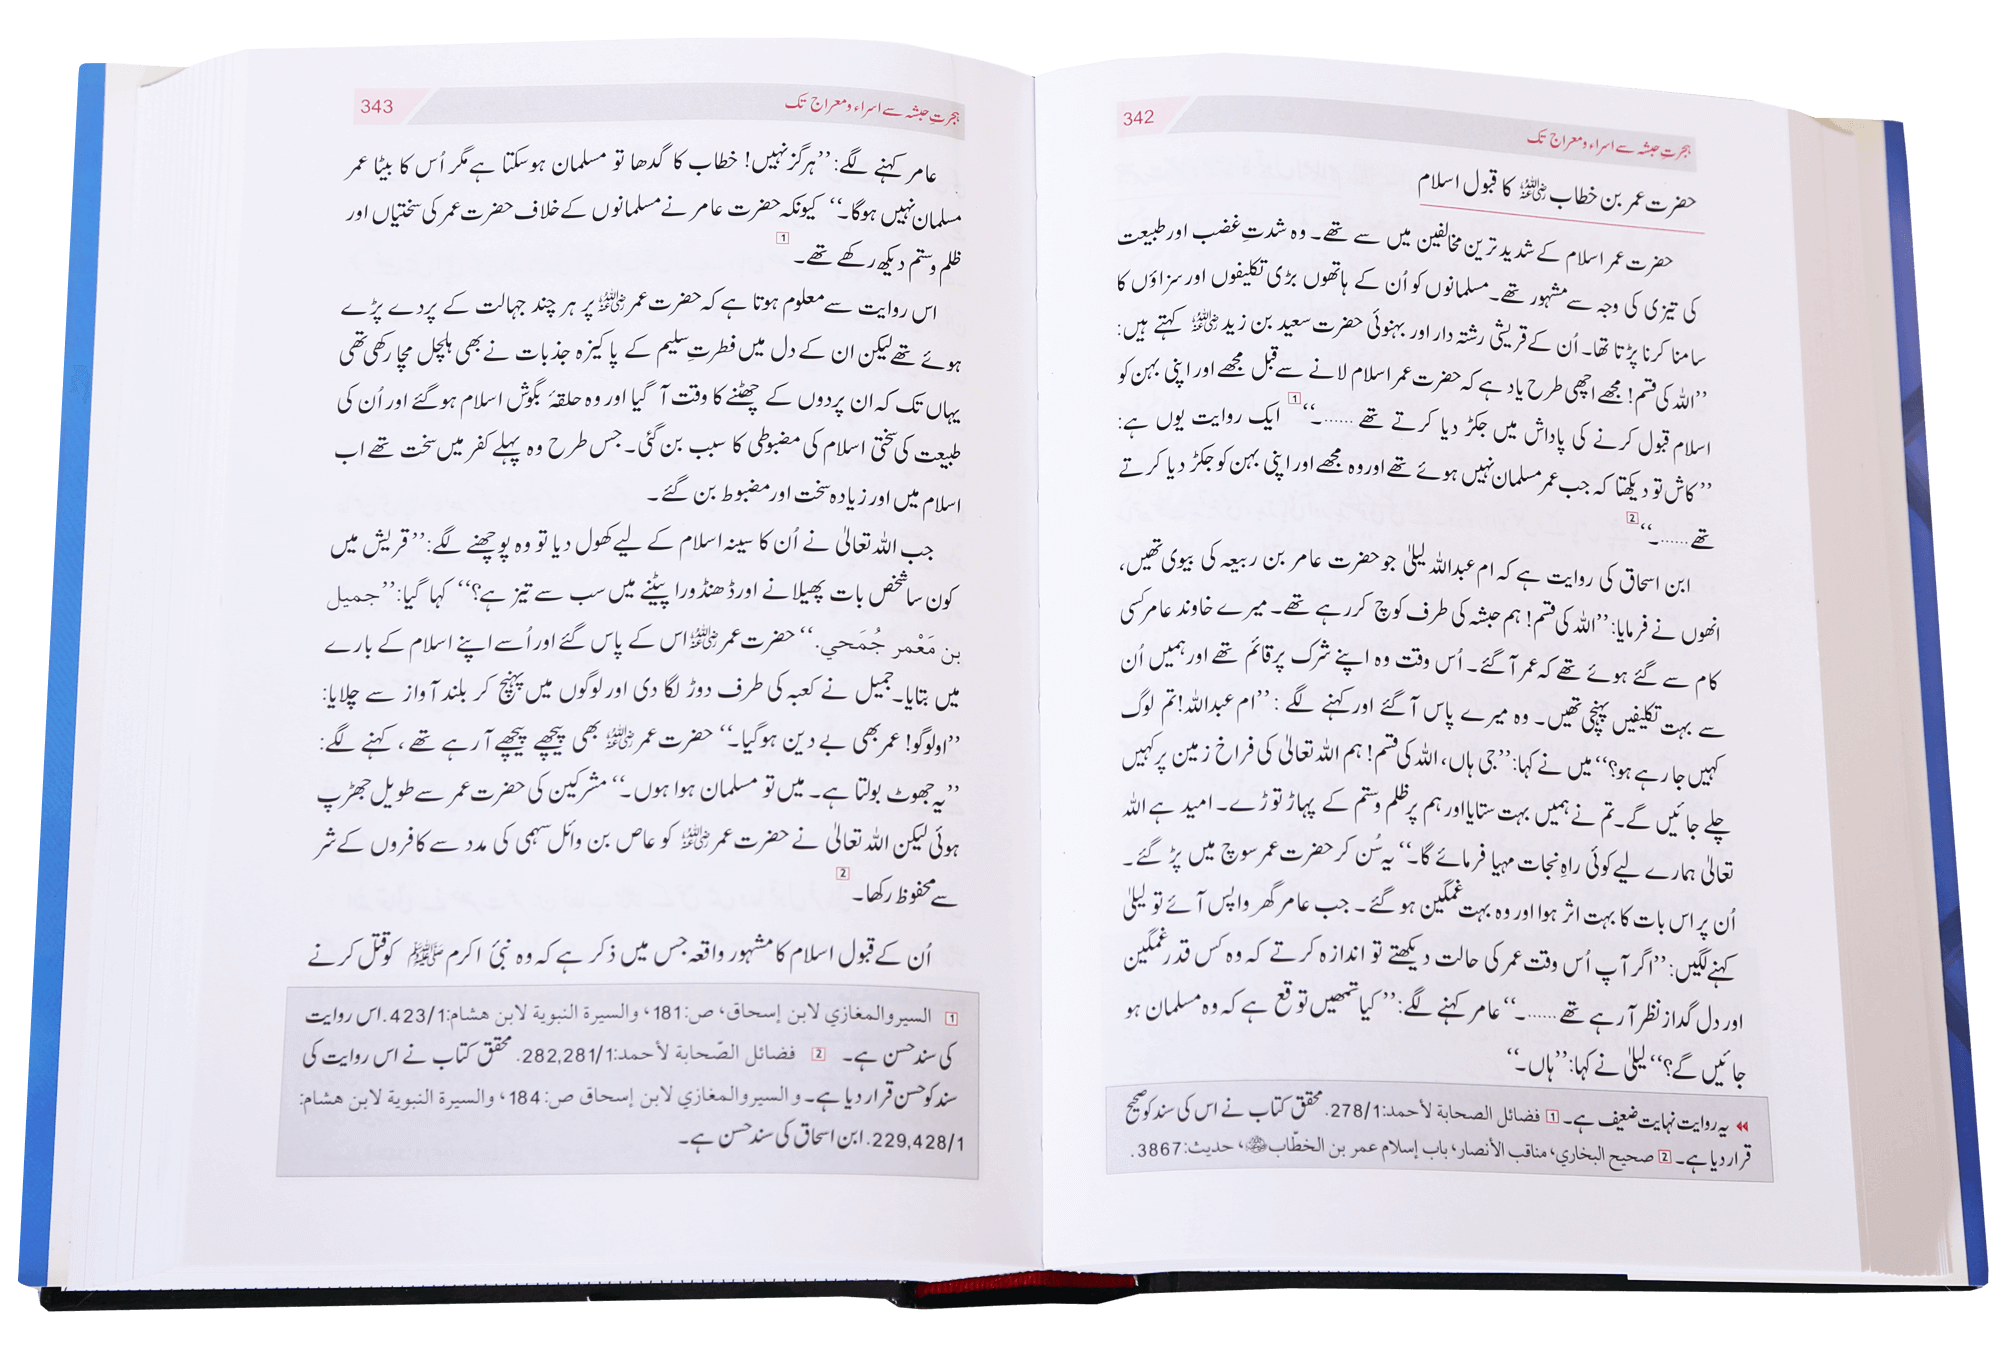 342
ہجرتِ حبشہ سے اسراء و معراج تک
حضرت عمر بن خطاب رضی اللہ عنہ کا قبول اسلام
حضرت عمر اسلام کے شدید ترین مخالفین میں سے تھے۔ وہ شدتِ غضب اور طبیعت
کی تیزی کی وجہ سے مشہور تھے۔ مسلمانوں کو اُن کے ہاتھوں بڑی تکلیفوں اور سزاؤں کا
سامنا کرنا پڑتا تھا۔ اُن کے قریشی رشتہ دار اور بہنوئی حضرت سعید بن زید رضی اللہ عنہ کہتے ہیں:
’’اللہ کی قسم! مجھے اچھی طرح یاد ہے کہ حضرت عمر اسلام لانے سے قبل مجھے اور اپنی بہن کو
اسلام قبول کرنے کی پاداش میں جکڑ دیا کرتے تھے ......۔‘‘ 1 ایک روایت یوں ہے:
’’کاش تو دیکھتا کہ جب عمر مسلمان نہیں ہوئے تھے اور وہ مجھے اور اپنی بہن کو جکڑ دیا کرتے
تھے ......۔‘‘ 2
ابن اسحاق کی روایت ہے کہ ام عبداللہ لیلیٰ جو حضرت عامر بن ربیعہ کی بیوی تھیں،
انھوں نے فرمایا: ’’اللہ کی قسم! ہم حبشہ کی طرف کوچ کر رہے تھے۔ میرے خاوند عامر کسی
کام سے گئے ہوئے تھے کہ عمر آ گئے۔ اُس وقت وہ اپنے شرک پر قائم تھے اور ہمیں اُن
سے بہت تکلیفیں پہنچی تھیں۔ وہ میرے پاس آ گئے اور کہنے لگے : ’’ام عبداللہ! تم لوگ
کہیں جا رہے ہو؟‘‘ میں نے کہا: ’’جی ہاں، اللہ کی قسم! ہم اللہ تعالیٰ کی فراخ زمین پر کہیں
چلے جائیں گے۔ تم نے ہمیں بہت ستایا اور ہم پر ظلم و ستم کے پہاڑ توڑے۔ امید ہے اللہ
تعالیٰ ہمارے لیے کوئی راہِ نجات مہیا فرمائے گا۔‘‘ یہ سُن کر حضرت عمر سوچ میں پڑ گئے۔
اُن پر اس بات کا بہت اثر ہوا اور وہ بہت غمگین ہو گئے۔ جب عامر گھر واپس آئے تو لیلیٰ
کہنے لگیں: ’’اگر آپ اُس وقت عمر کی حالت دیکھتے تو اندازہ کرتے کہ وہ کس قدر غمگین
اور دل گداز نظر آ رہے تھے ......۔‘‘ عامر کہنے لگے: ’’کیا تمھیں توقع ہے کہ وہ مسلمان ہو
جائیں گے؟‘‘ لیلیٰ نے کہا: ’’ہاں۔‘‘
یہ روایت نہایت ضعیف ہے۔ 1 فضائل الصحابة لأحمد: 278/1. محقق کتاب نے اس کی سند کو صحیح
قرار دیا ہے۔ 2 صحيح البخاري، مناقب الأنصار، باب إسلام عمر بن الخطّاب رضی اللہ عنہ، حديث: 3867.
343
ہجرتِ حبشہ سے اسراء و معراج تک
عامر کہنے لگے: ’’ہرگز نہیں! خطاب کا گدھا تو مسلمان ہو سکتا ہے مگر اُس کا بیٹا عمر
مسلمان نہیں ہو گا۔‘‘ کیونکہ حضرت عامر نے مسلمانوں کے خلاف حضرت عمر کی سختیاں اور
ظلم و ستم دیکھ رکھے تھے۔ 1
اس روایت سے معلوم ہوتا ہے کہ حضرت عمر رضی اللہ عنہ پر ہر چند جہالت کے پردے پڑے
ہوئے تھے لیکن ان کے دل میں فطرتِ سلیم کے پاکیزہ جذبات نے بھی ہلچل مچا رکھی تھی
یہاں تک کہ ان پردوں کے چھٹنے کا وقت آ گیا اور وہ حلقۂ بگوش اسلام ہو گئے اور اُن کی
طبیعت کی سختی اسلام کی مضبوطی کا سبب بن گئی۔ جس طرح وہ پہلے کفر میں سخت تھے اب
اسلام میں اور زیادہ سخت اور مضبوط بن گئے۔
جب اللہ تعالیٰ نے اُن کا سینہ اسلام کے لیے کھول دیا تو وہ پوچھنے لگے: ’’قریش میں
کون سا شخص بات پھیلانے اور ڈھنڈورا پیٹنے میں سب سے تیز ہے؟‘‘ کہا گیا: ’’جميل
بن مَعْمر جُمَحي.‘‘ حضرت عمر رضی اللہ عنہ اس کے پاس گئے اور اُسے اپنے اسلام کے بارے
میں بتایا۔ جمیل نے کعبہ کی طرف دوڑ لگا دی اور لوگوں میں پہنچ کر بلند آواز سے چلایا:
’’او لوگو! عمر بھی بے دین ہو گیا۔‘‘ حضرت عمر رضی اللہ عنہ بھی پیچھے پیچھے آ رہے تھے، کہنے لگے:
’’یہ جھوٹ بولتا ہے۔ میں تو مسلمان ہوا ہوں۔‘‘ مشرکین کی حضرت عمر سے طویل جھڑپ
ہوئی لیکن اللہ تعالیٰ نے حضرت عمر رضی اللہ عنہ کو عاص بن وائل سہمی کی مدد سے کافروں کے شر
سے محفوظ رکھا۔ 2
اُن کے قبول اسلام کا مشہور واقعہ جس میں ذکر ہے کہ وہ نبیٔ اکرم ﷺ کو قتل کرنے
1 السير والمغازي لابن إسحاق، ص: 181، والسيرة النبوية لابن هشام: 423/1. اس روایت
کی سند حسن ہے۔ 2 فضائل الصّحابة لأحمد: 282,281/1. محقق کتاب نے اس روایت کی
سند کو حسن قرار دیا ہے۔ والسير والمغازي لابن إسحاق ص: 184، والسيرة النبوية لابن هشام:
229,428/1. ابن اسحاق کی سند حسن ہے۔